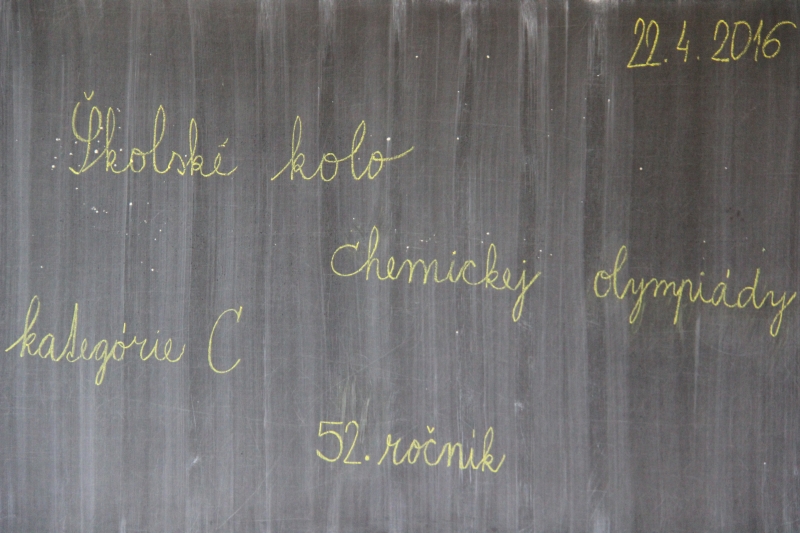 22.4.2016
Školské kolo
chemickej olympiády
kategórie C
52. ročník